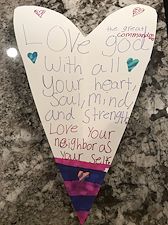 the great
commandm
Love god
with all
Your heart,
Soul, mind,
and strength
Love Your
neighbor as
your self